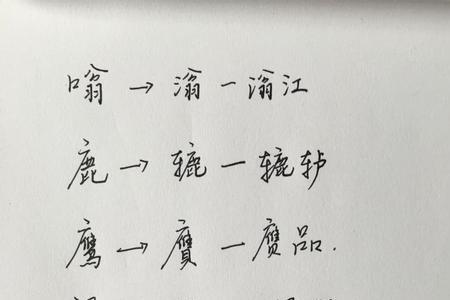 嗡 → 滃 一 滃江
鹿 → 辘 一 辘轳
鹰 → 赝 一 赝品.